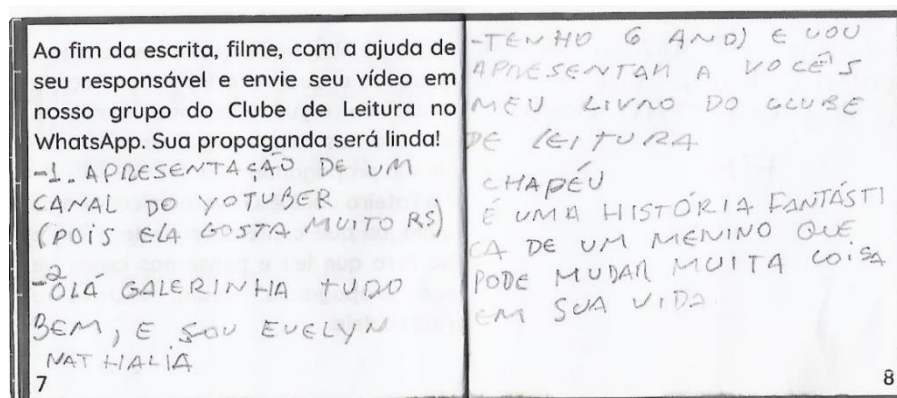 Ao fim da escrita, filme, com a ajuda de
seu responsável e envie seu vídeo em
nosso grupo do Clube de Leitura no
WhatsApp. Sua propaganda será linda!
-1. APRESENTAÇÃO DE UM
CANAL DO YOTUBER
(POIS ELA GOSTA MUITO RS)
-2
-OLA GALERINHA TUDO
BEM, E SOU EVELYN
NATHALIA
7
-TENHO 6 ANOS E VOU
APRESENTAR A VOCÊS
MEU LIVRO DO CLUBE
DE LEITURA
CHAPÉU
É UMA HISTÓRIA FANTÁSTI
CA DE UM MENINO QUE
PODE MUDAR MUITA COISA
EM SUA VIDA.
8